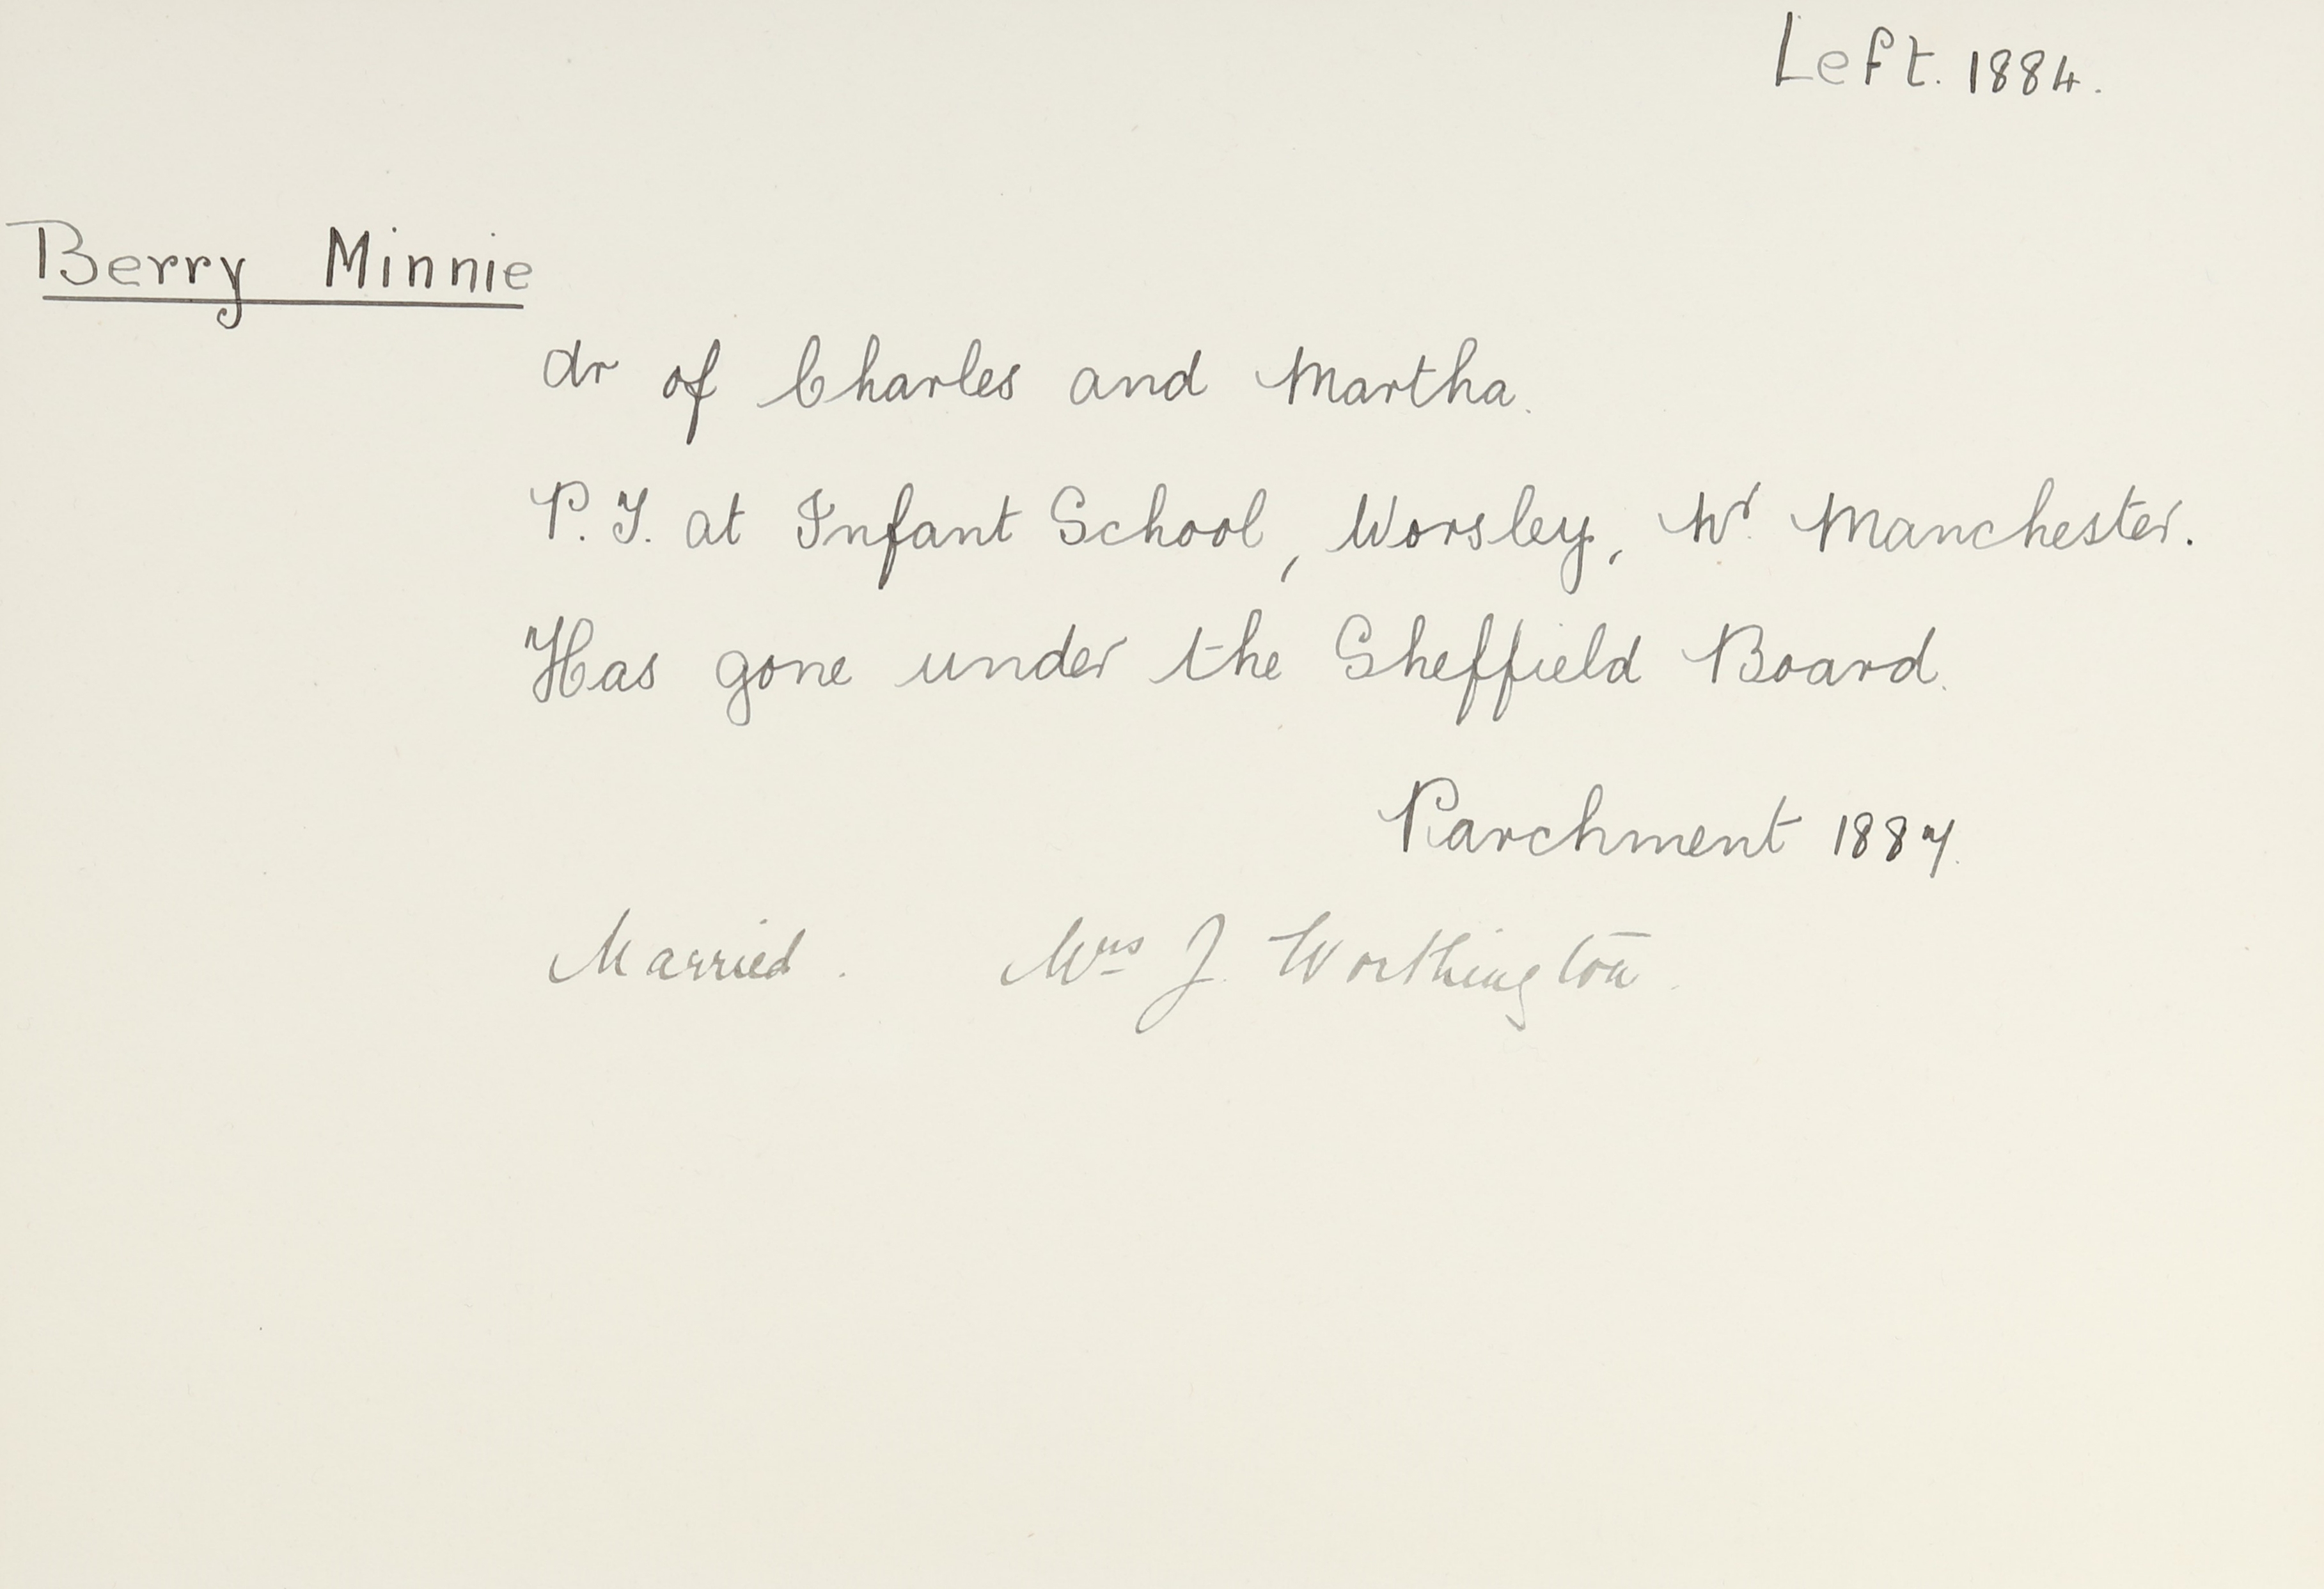 Left. 1884.
Berry Minnie
dr of Charles and Martha.
P.T. at Infant School, Worsley, Nr. Manchester.
Has gone under the Sheffield Board.
Parchment 1887.
Married. Mrs J. Worthington.